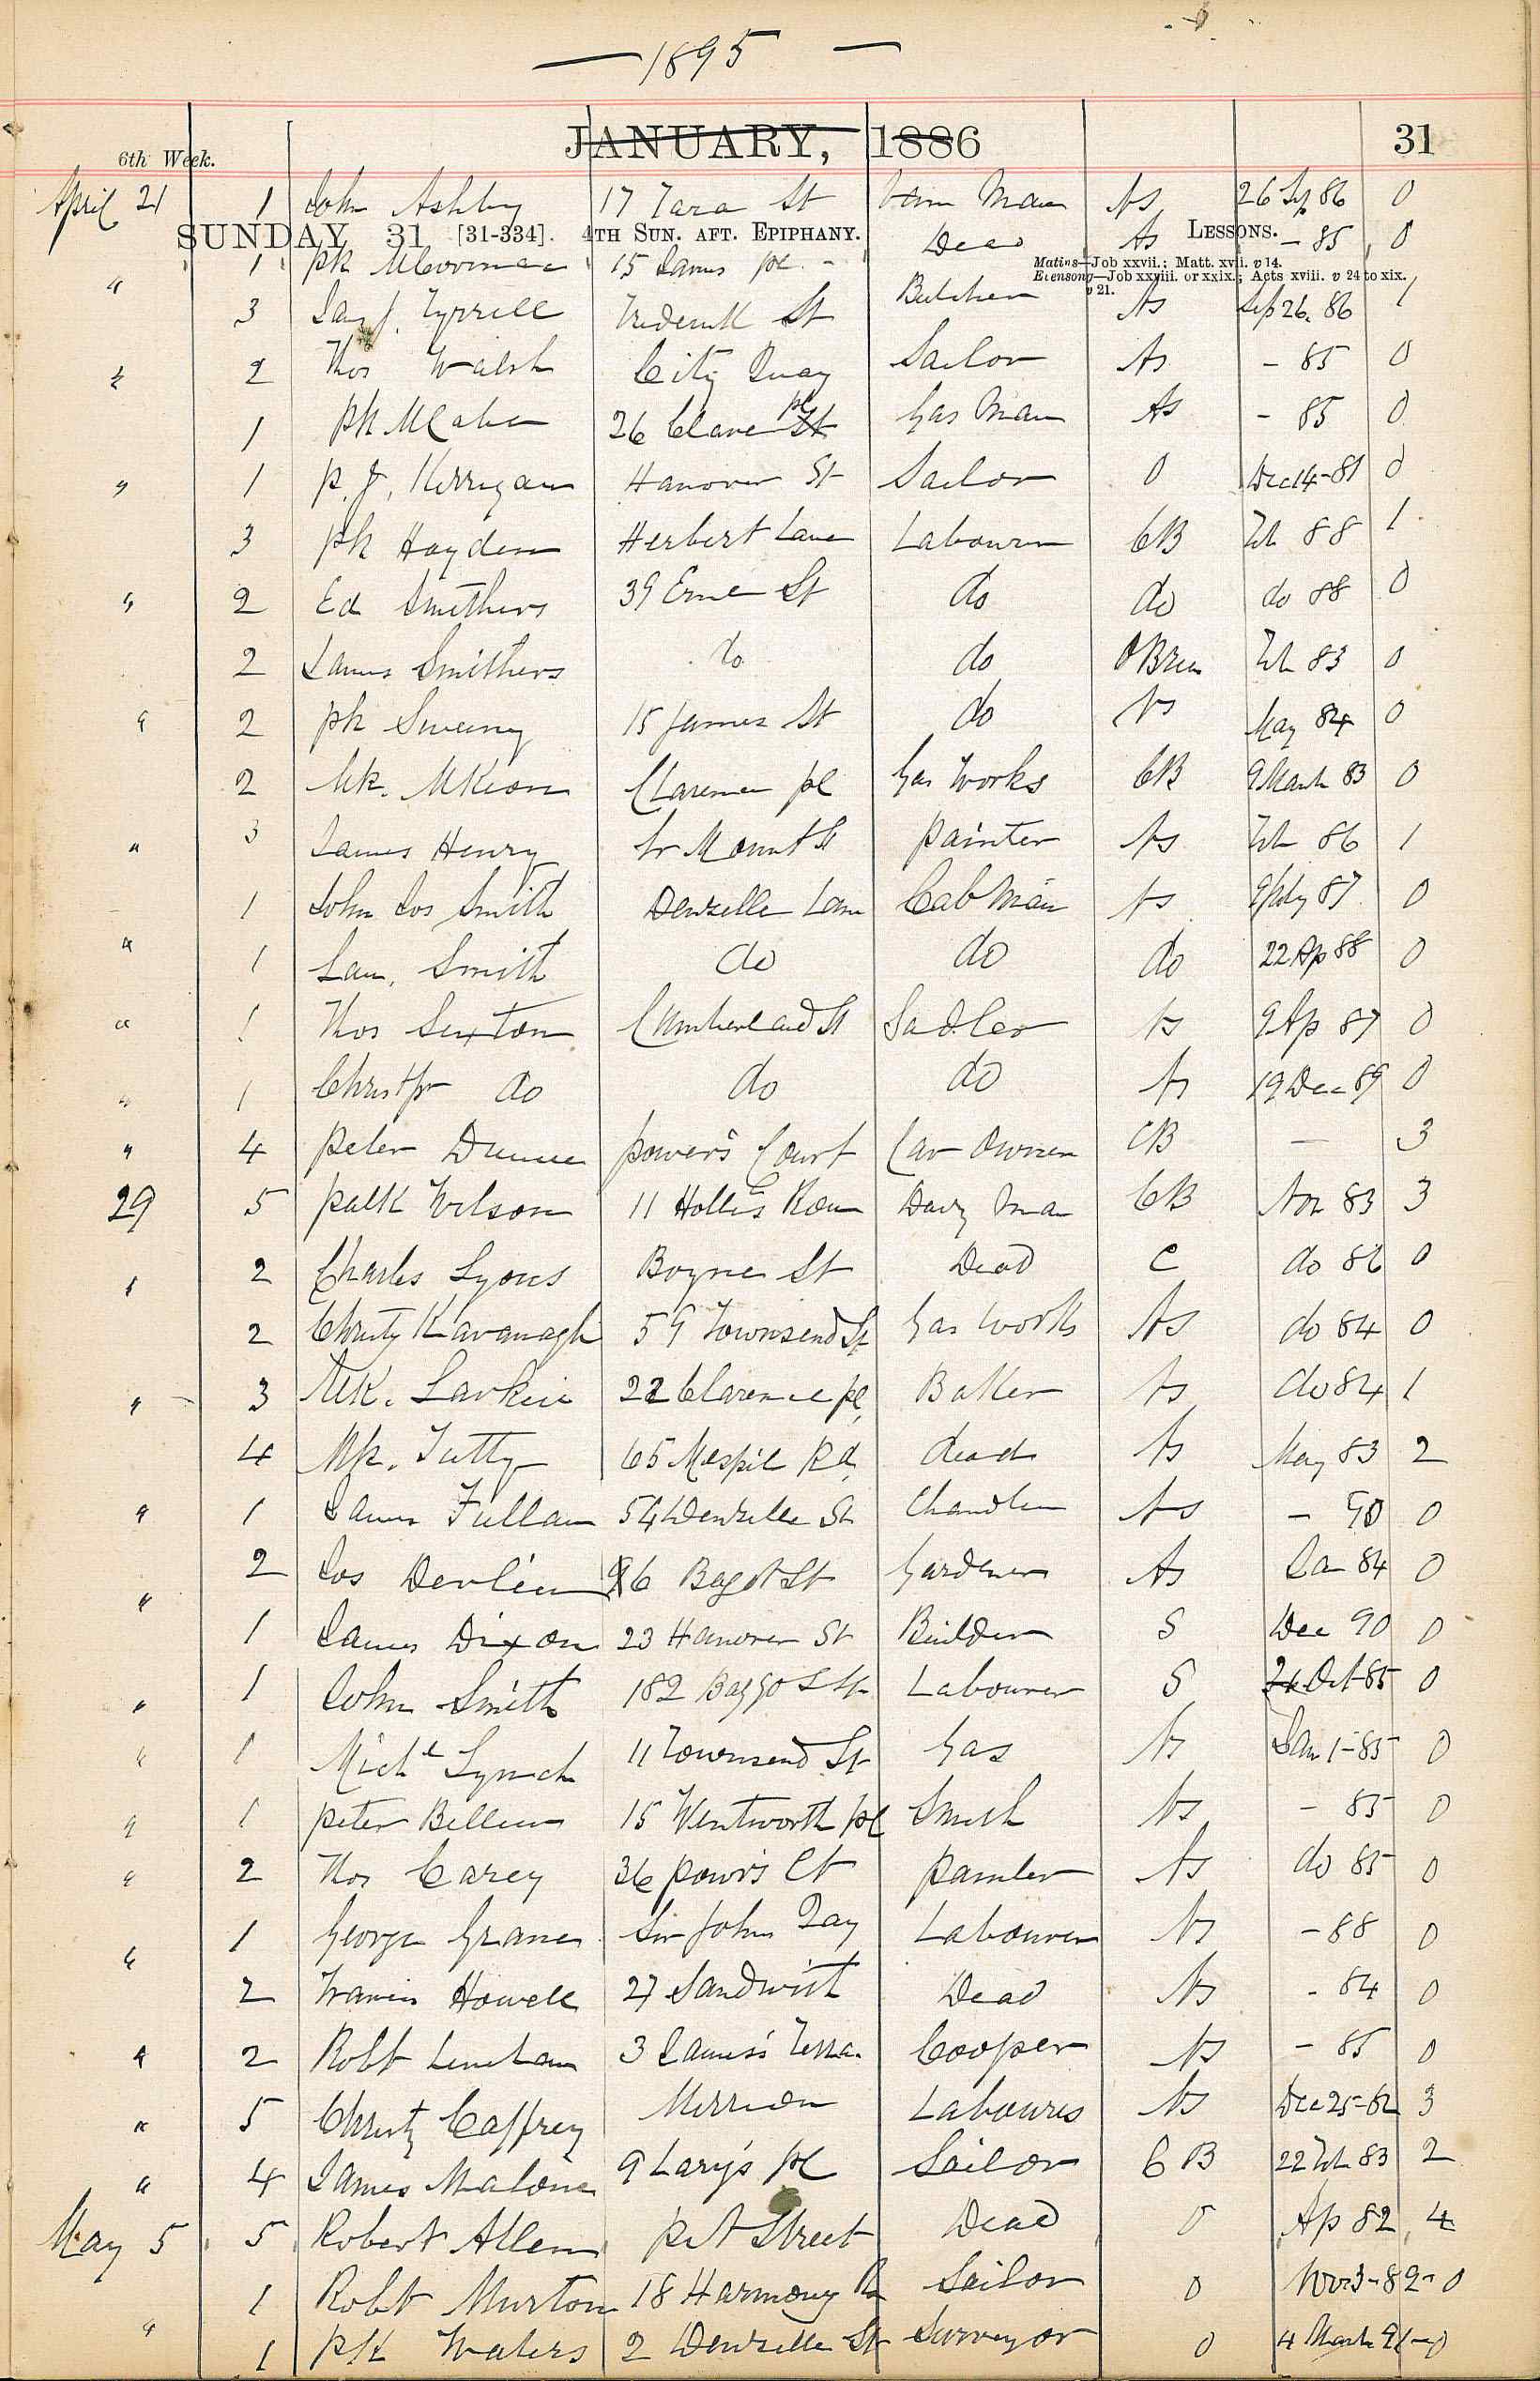 — 1895 —
JANUARY, 1886 31
6th Week.
April 21 1 John Ashby 17 Tara St Van Man Ns 26 Sep 86 0
SUNDAY 31 [31-334]. 4TH SUN. AFT. EPIPHANY. LESSONS.
Matins—Job xxvii.; Matt. xvii. v 14.
Evensong—Job xxviii. or xxix.; Acts xviii. v 24 to xix. v 21.
" 1 Pk McCormac 15 James pl - Dead Ns - 85 0
3 Jas J. Tyrrell Frederick St Butcher Ns Sep 26. 86 1
" 2 Thos Walsh City Quay Sailor Ns - 85 0
1 Pk McCabe 26 Clare pl Gas Man Ns - 85 0
" 1 P. J. Kerrigan Hanover St Sailor O Dec 14-81 0
3 Pk Hayden Herbert Lane Labourer CB Feb 88 1
" 2 Ed Smithers 39 Erne St do do do 88 0
2 James Smithers do do OBrien Feb 83 0
" 2 Pk Sweeny 15 James St do Ns May 84 0
2 Mk. McKeon Clarence pl Gas Works CB 9 March 83 0
" 3 James Henry Lr Mount St Painter Ns Feb 86 1
1 John Jos Smith Denzelle Lane Cab Man Ns 87 0
" 1 Lau. Smith do do do 22 Ap 88 0
" 1 Thos Sexton Cumberland St Sadler Ns 9 Ap 87 0
" 1 Christpr do do do Ns 19 Dec 89 0
" 4 Peter Dunne Power's Court Car Owner CB — 3
29 5 Patk Wilson 11 Holles Row Dairy Man CB Nov 83 3
" 2 Charles Lyons Boyne St Dead C do 86 0
2 Christy Kavanagh 59 Townsend St Gas Works Ns do 84 0
" 3 Mk. Larkin 22 Clarence pl, Baker Ns do 84 1
4 Mk. Tutty 65 Mespil Rd, dead Ns May 83 2
" 1 James Fullam 54 Denzelle St Chandler Ns - 90 0
" 2 Jos Devlin 96 Bagot St Gardener Ns Jan 84 0
1 James Dixon 23 Hanover St Builder S Dec 90 0
" 1 John Smith 182 Baggot St Labourer S 24 Oct-85 0
" 1 Michl Lynch 11 Townsend St Gas Ns Jan 1-85 0
" 1 Peter Billew 15 Wentworth pl Smith Ns - 85 0
" 2 Thos Carey 36 Powr's Ct Painter Ns do 85 0
" 1 George Graves Sir John Qay Labourer Ns - 88 0
2 Francis Howell 27 Sandwith Dead Ns - 84 0
" 2 Robt Lenehan 3 James's Terra. Cooper Ns - 85 0
" 5 Christy Caffrey Merrion Labourer Ns Dec 25-82 3
" 4 James Malone 9 Lary's pl Sailor CB 22 Feb 83 2
May 5 5 Robert Allen Pit Street Dead O Ap 82 4
1 Robt Murton 18 Harmony R Sailor O Nov 3-82- 0
" 1 Pk Waters 2 Denzelle St Surveyor O 4 March 91-0